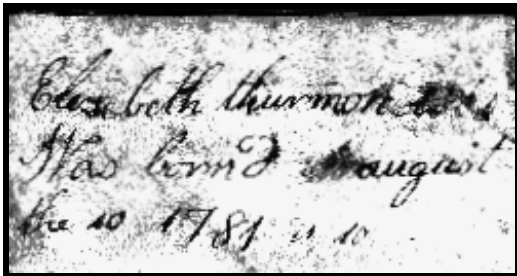 Elizebeth thurmon
Was born'd august
the 10 1781